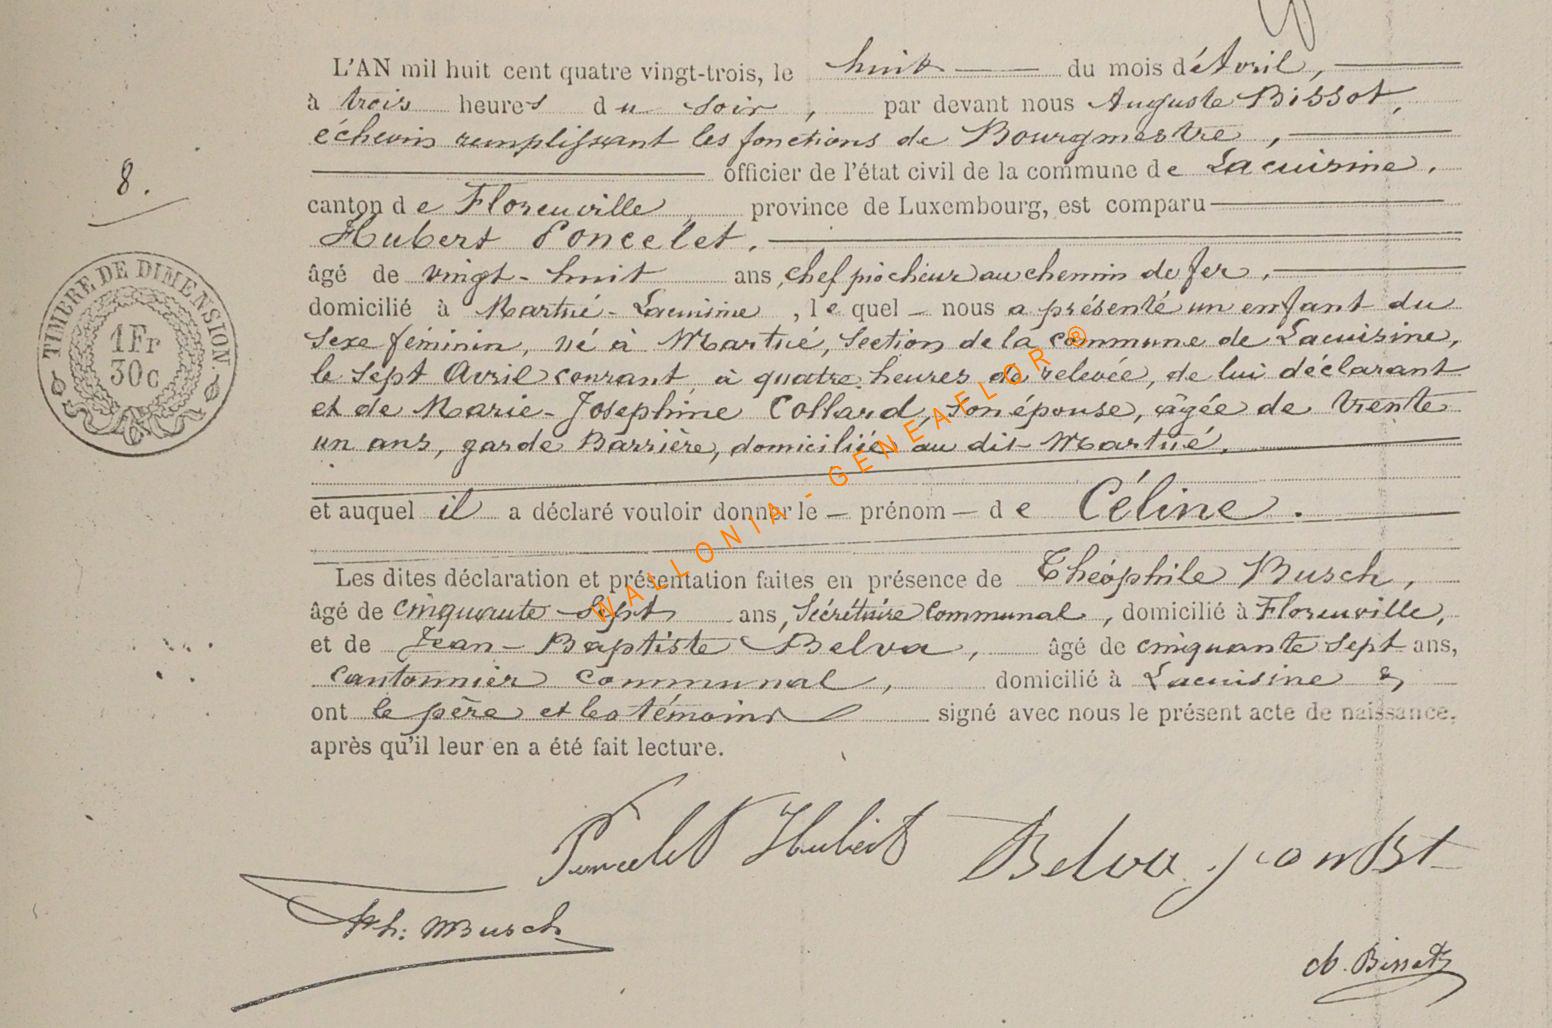 L'AN mil huit cent quatre vingt-trois, le huit du mois d'Avril,
à trois heures du soir, par devant nous Auguste Bissot,
échevin remplissant les fonctions de Bourgmestre,
officier de l'état civil de la commune de Lacuisine,
8.
canton de Florenville, province de Luxembourg, est comparu
Hubert Poncelet,
âgé de vingt-huit ans, chef piocheur au chemin de fer,
domicilié à Martué-Lacuisine, lequel nous a présenté un enfant du
Sexe féminin, né à Martué, Section de la commune de Lacuisine,
le sept Avril courant, à quatre heures de relevée, de lui déclarant
et de Marie-Josephine Collard, son épouse, âgée de trente
un ans, garde Barrière, domiciliée au dit Martué,
TIMBRE DE DIMENSION.
1Fr
30c
et auquel il a déclaré vouloir donner le prénom de Céline.
Les dites déclaration et présentation faites en présence de Théophile Busch,
âgé de cinquante Sept ans, Sécrétaire Communal, domicilié à Florenville,
et de Jean-Baptiste Belva, âgé de cinquante Sept ans,
Cantonnier Communal, domicilié à Lacuisine &
ont le père et les témoins signé avec nous le présent acte de naissance,
après qu'il leur en a été fait lecture.
Poncelet Hubert Belva Jean Bt
Th: Busch
A. Bissot
WALLONIA - GENEAFLOR ®